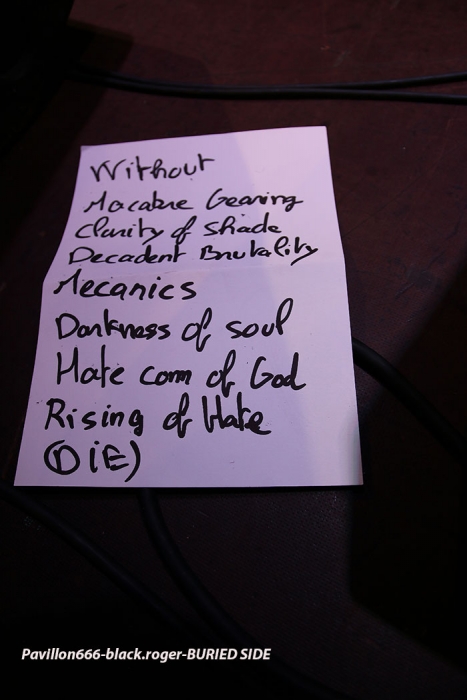 Without
Macabre Gearing
Clarity of shade
Decadent Brutality
Mecanics
Darkness of soul
Hate com of God
Rising of Hate
(DiE)
Pavillon666-black.roger-BURIED SIDE